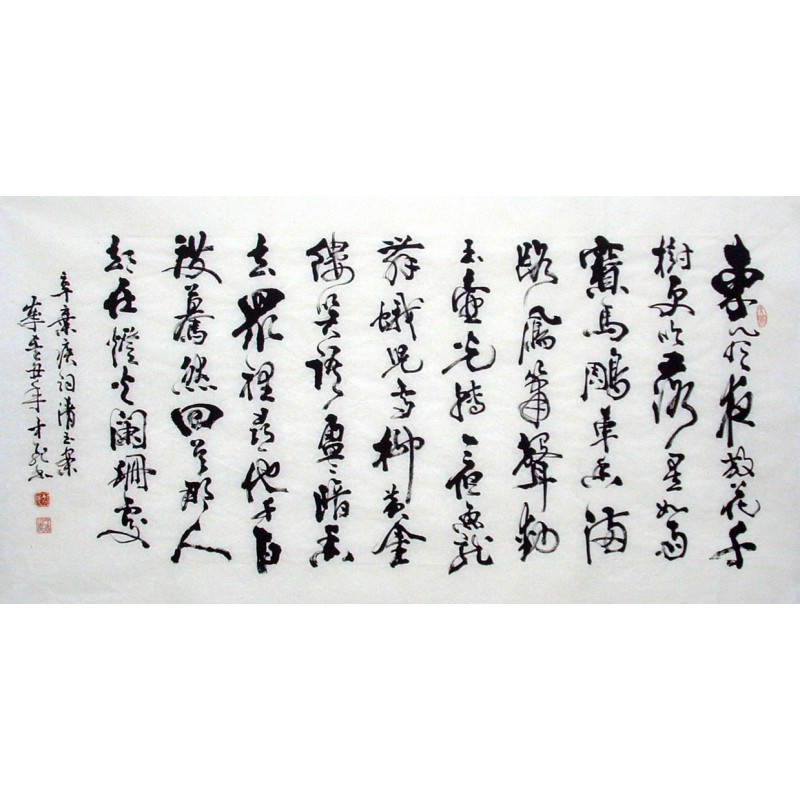 東風夜放花千
樹更吹落星如雨
寶馬鵰車香滿
路鳳簫聲動
玉壺光轉一夜魚龍
舞蛾兒雪柳黃金
縷笑語盈盈暗香
去眾裡尋他千百
度驀然回首那人
卻在燈火闌珊處
辛棄疾詞青玉案
丑年